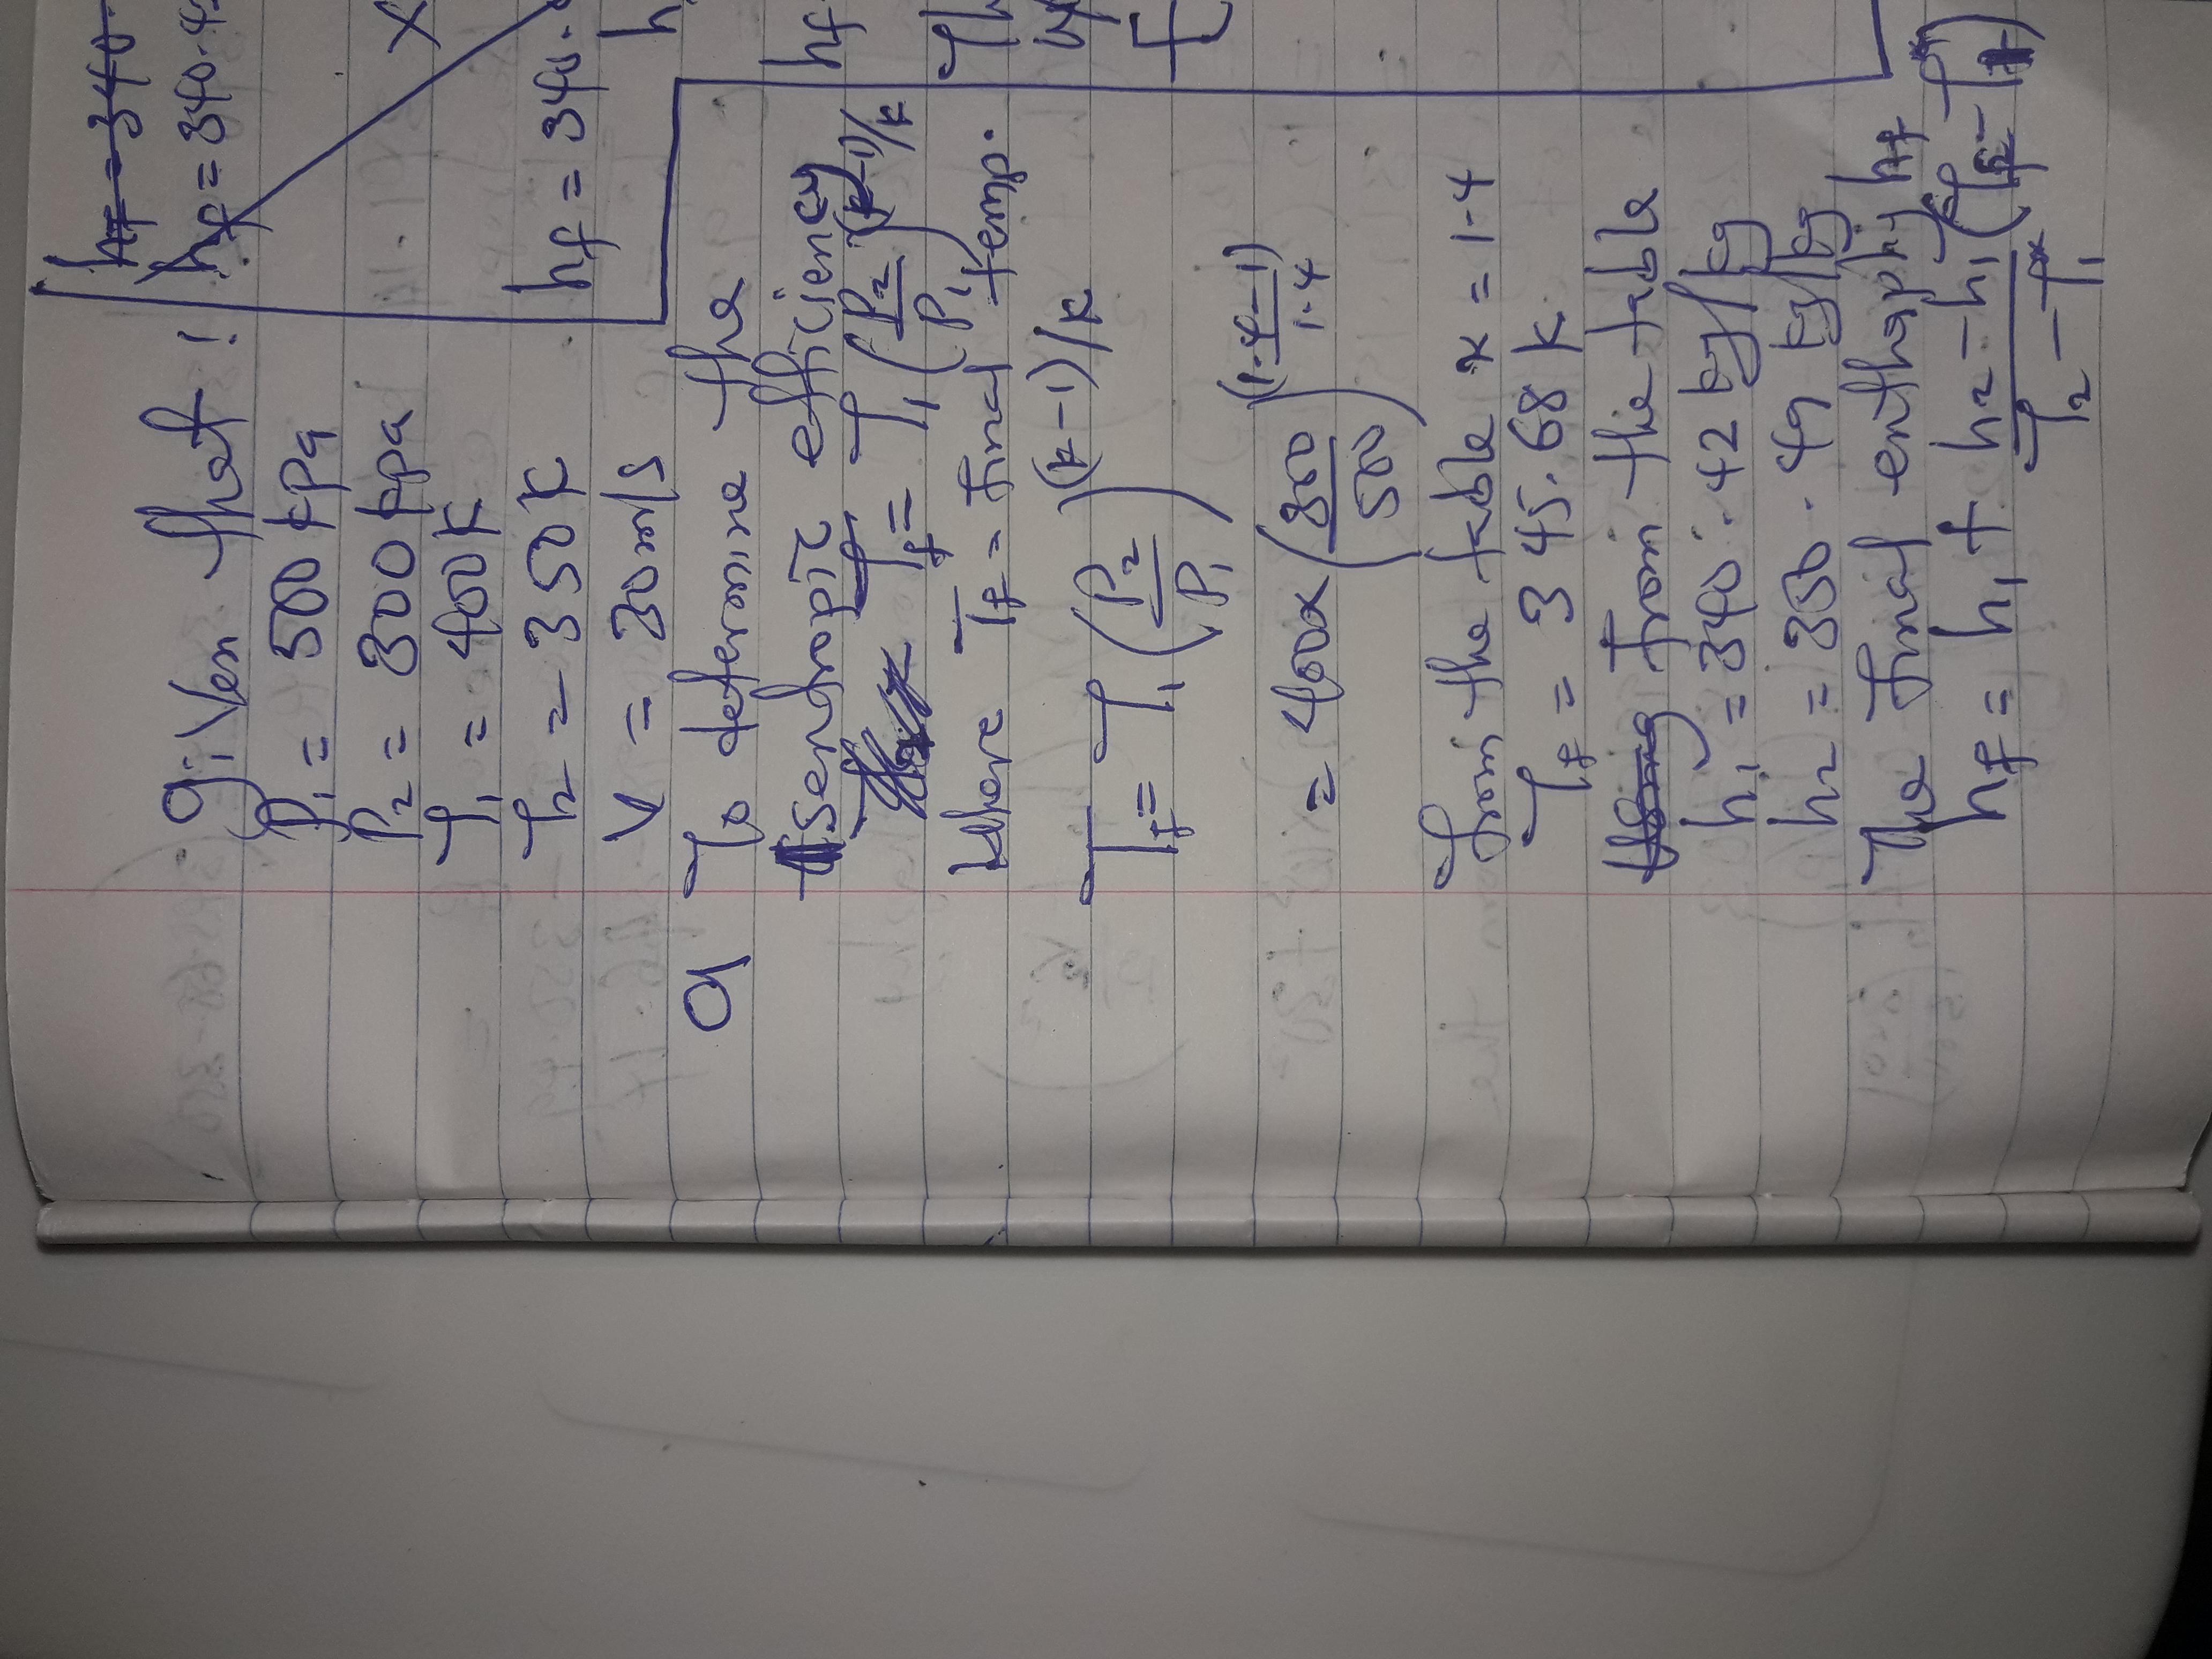 given that :
P₁ = 500 kPa
P₂ = 300 kpa
T₁ = 400K
T₂ = 350K
V = 30 m/s
a To determine the
isentropic efficiency
T_f = T₁ (P₂/P₁)^(k-1)/k
where T_f = final temp.
T_f = T₁ (P₂/P₁)^(k-1)/k
= 400 x (300/500)^(1.4-1)/1.4
from the table k = 1.4
T_f = 345.68 K
from the table
h₁ = 340.42 kJ/kg
h₂ = 350.49 kJ/kg
The final enthaphy h_f
h_f = h₁ + h₂ - h₁ (T_f - T₁)/T₂ - T₁
h_f = 340
h_f = 340.4
X
h_f = 340.
h
h_f
Th
by